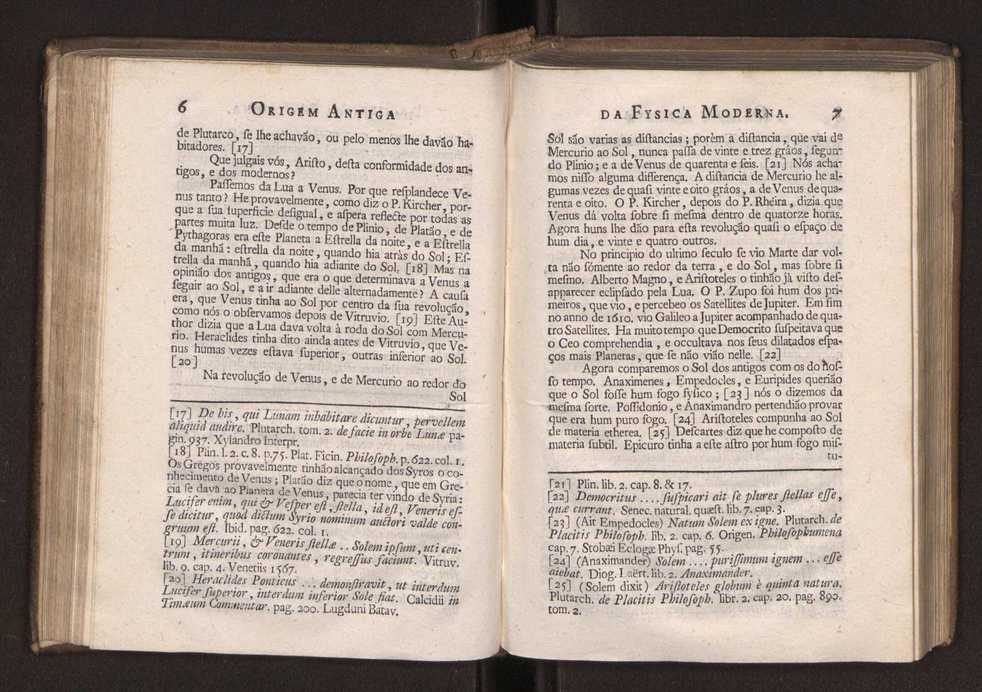 6 ORIGEM ANTIGA
de Plutarco, ſe lhe achavão, ou pelo menos lhe davão ha-
bitadores. [17]
Que julgais vós, Ariſto, deſta conformidade dos an-
tigos, e dos modernos?
Paſſemos da Lua a Venus. Por que reſplandece Ve-
nus tanto? He provavelmente, como diz o P. Kircher, por-
que a ſua ſuperficie deſigual, e aſpera reflećte por todas as
partes muita luz. Deſde o tempo de Plinio, de Platão, e de
Pythagoras era eſte Planeta a Eſtrella da noite, e a Eſtrella
da manhã: eſtrella da noite, quando hia atràs do Sol; Eſ-
trella da manhã, quando hia adiante do Sol. [18] Mas na
opinião dos antigos, que era o que determinava a Venus a
ſeguir ao Sol, e a ir adiante delle alternadamente? A cauſa
era, que Venus tinha ao Sol por centro da ſua revolução,
como nós o obſervamos depois de Vitruvio. [19] Eſte Au-
thor dizia que a Lua dava volta à roda do Sol com Mercu-
rio. Heraclides tinha dito ainda antes de Vitruvio, que Ve-
nus humas vezes eſtava ſuperior, outras inferior ao Sol.
[20]
Na revolução de Venus, e de Mercurio ao redor do
Sol
[17] De his, qui Lunam inhabitare dicuntur, pervellem
aliquid audire. Plutarch. tom. 2. de facie in orbe Lunæ pa-
gin. 937. Xylandro Interpr.
[18] Plin. l. 2. c. 8. p.75. Plat. Ficin. Philoſoph. p. 622. col. 1.
Os Gregos provavelmente tinhão alcançado dos Syros o co-
nhecimento de Venus; Platão diz que o nome, que em Gre-
cia ſe dava ao Planera de Venus, parecia ter vindo de Syria:
Lucifer enim, qui & Veſper eſt, ſtella, id eſt, Veneris eſ-
ſe dicitur, quod dićtum Syrio nominum aućtori valde con-
gruum eſt. Ibid. pag. 622. col. 1.
[19] Mercurii, & Veneris ſtellæ .. Solem ipſum, uti cen-
trum, itineribus coronantes, regreſſus faciunt. Vitruv.
lib. 9. cap. 4. Venetiis 1567.
[20] Heraclides Ponticus ... demonſtravit, ut interdum
Lucifer ſuperior, interdum inferior Sole fiat. Calcidii in
Timæum Commentar. pag. 200. Lugduni Batav.
DA FYSICA MODERNA. 7
Sol são varias as diſtancias; porèm a diſtancia, que vai de
Mercurio ao Sol, nunca paſſa de vinte e trez gráos, ſegun-
do Plinio; e a de Venus de quarenta e ſeis. [21] Nós acha-
mos niſſo alguma differença. A diſtancia de Mercurio he al-
gumas vezes de quaſi vinte e oito gráos, a de Venus de qua-
renta e oito. O P. Kircher, depois do P. Rhéira, dizia que
Venus dá volta ſobre ſi meſma dentro de quatorze horas.
Agora huns lhe dão para eſta revolução quaſi o eſpaço de
hum dia, e vinte e quatro outros.
No principio do ultimo ſeculo ſe vio Marte dar vol-
ta não ſómente ao redor da terra, e do Sol, mas ſobre ſi
meſmo. Alberto Magno, e Ariſtoteles o tinhão jà viſto deſ-
apparecer eclipſado pela Lua. O P. Zupo foi hum dos pri-
meiros, que vio, e percebeo os Satellites de Jupiter. Em fim
no anno de 1610. vio Galileo a Jupiter acompanhado de qua-
tro Satellites. Ha muito tempo que Democrito ſuſpeitava que
o Ceo comprehendia, e occultava nos ſeus dilatados eſpa-
ços mais Planetas, que ſe não vião nelle. [22]
Agora comparemos o Sol dos antigos com os do noſ-
ſo tempo. Anaximenes, Empedocles, e Euripides querião
que o Sol foſſe hum fogo fyſico; [23] nós o dizemos da
meſma ſorte. Poſſidonio, e Anaximandro pertendião provar
que era hum puro fogo. [24] Ariſtoteles compunha ao Sol
de materia etherea. [25] Deſcartes diz que he compoſto de
materia ſubtil. Epicuro tinha a eſte aſtro por hum fogo miſ-
tu-
[21] Plin. lib. 2. cap. 8. & 17.
[22] Democritus .... ſuſpicari ait ſe plures ſtellas eſſe,
quæ currant. Senec. natural. quæſt. lib. 7. cap. 3.
[23] (Ait Empedocles) Natum Solem ex igne. Plutarch. de
Placitis Philoſoph. lib. 2. cap. 6. Origen. Philoſophumena
cap. 7. Stobæi Eclogæ Phyſ. pag. 55.
[24] (Anaximander) Solem .... puriſſimum ignem ... eſſe
aiebat. Diog. Laërt. lib. 2. Anaximander.
[25] (Solem dixit) Ariſtoteles globum è quinta natura.
Plutarch. de Placitis Philoſoph. libr. 2. cap. 20. pag. 890.
tom. 2.